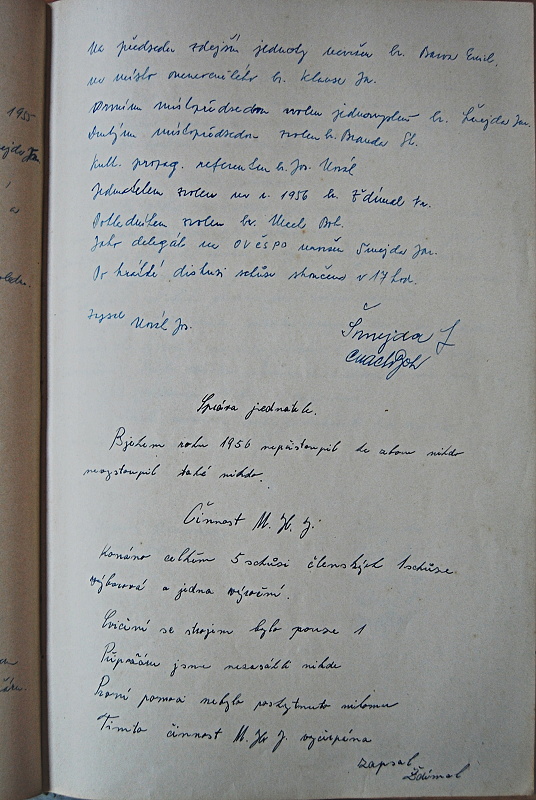 1955
Na předsedu zdejší jednoty navržen br. Emil.
na místo onemocnělého br. Klause Jar.
Prvním místopředsedou zvolen jednomyslně br. Šmejda Jar.
Druhým místopředsedou zvolen br. Branda St.
Kult. propag. referentem br. Jos.
Jednatelem zvolen na r. 1956 br. Ždímal Fr.
Pokladníkem zvolen br. Boh.
Jako delegát na OVČSPO navržen Šmejda Jar.
Po krátké diskusi schůze skončena v 17 hod.
Zapsal
Jos.
Šmejda J
Boh
Zpráva jednatele.
Během roku 1956 nepřistoupil do sboru nikdo
nevystoupil také nikdo.
Činnost M. H. J.
Konáno celkem 5 schůzí členských 1 schůze
výborová a jedna výroční.
Cvičení se strojem bylo pouze 1
jsme nezasáhli nikde
První pomoci nebylo poskytnuto nikomu
Tímto činnost M. H. J. vyčerpána
zapsal
Ždímal